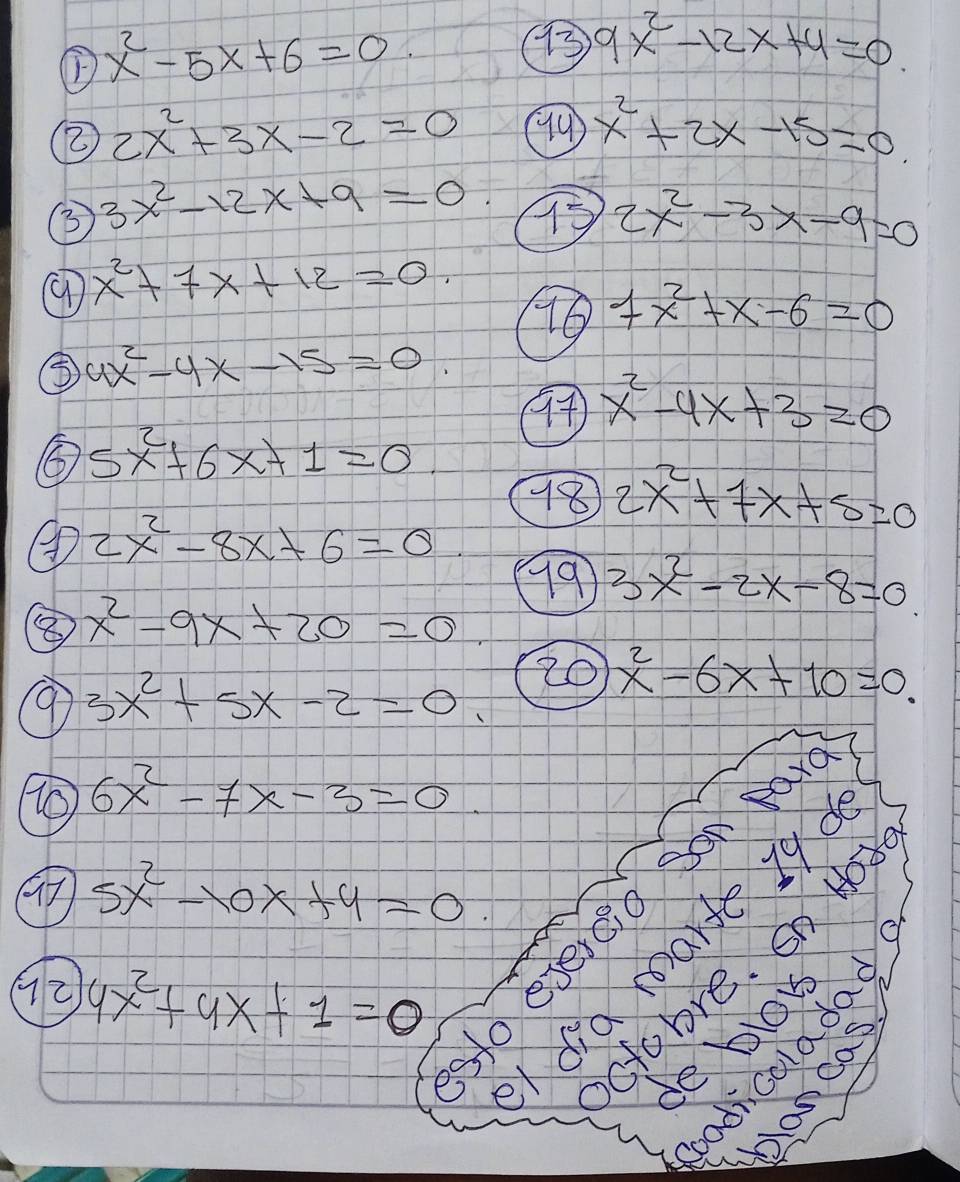 ① x² - 5x + 6 = 0.
② 2x² + 3x - 2 = 0
③ 3x² - 12x + 9 = 0.
④ x² + 7x + 12 = 0.
⑤ 4x² - 4x - 15 = 0.
⑥ 5x² + 6x + 1 = 0.
⑦ 2x² - 8x + 6 = 0.
⑧ x² - 9x + 20 = 0.
⑨ 3x² + 5x - 2 = 0.
⑩ 6x² - 7x - 3 = 0.
⑪ 5x² - 10x + 4 = 0.
⑫ 4x² + 4x + 1 = 0
⑬ 9x² - 12x + 4 = 0.
⑭ x² + 2x - 15 = 0.
⑮ 2x² - 3x - 9 = 0
⑯ 7x² + x - 6 = 0
⑰ x² - 4x + 3 = 0
⑱ 2x² + 7x + 5 = 0
⑲ 3x² - 2x - 8 = 0.
⑳ x² - 6x + 10 = 0.
esto ejercio son para
el dia marte 14 de
octobre. en Hoja
de block
cuadiculadad o
blancas.